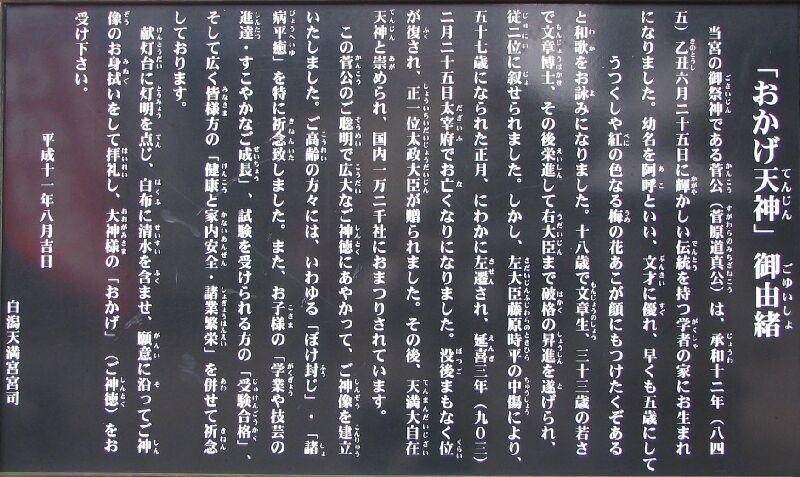 「おかげ天神」御由緒
当宮の御祭神である菅公（菅原道真公）は、承和十二年（八四
五）乙丑六月二十五日に輝かしい伝統を持つ学者の家にお生まれ
になりました。幼名を阿呼といい、文才に優れ、早くも五歳にして
うつくしや紅の色なる梅の花あこが顔にもつけたくぞある
と和歌をお詠みになりました。十八歳で文章生、三十三歳の若さ
で文章博士、その後栄進して右大臣まで破格の昇進を遂げられ、
従二位に叙せられました。しかし、左大臣藤原時平の中傷により、
五十七歳になられた正月、にわかに左遷され、延喜三年（九〇三）
二月二十五日太宰府でお亡くなりになりました。没後まもなく位
が復され、正一位太政大臣が贈られました。その後、天満大自在
天神と崇められ、国内一万二千社におまつりされています。
この菅公のご聡明で広大なご神徳にあやかって、ご神像を建立
いたしました。ご高齢の方々には、いわゆる「ぼけ封じ」・「諸
病平癒」を特に祈念致しました。また、お子様の「学業や技芸の
進達・すこやかなご成長」、試験を受けられる方の「受験合格」、
そして広く皆様方の「健康と家内安全・諸業繁栄」を併せて祈念
しております。
献灯台に灯明を点じ、白布に清水を含ませ、願意に沿ってご神
像のお身拭いをして拝礼し、大神様の「おかげ」（ご神徳）をお
受け下さい。
平成十一年八月吉日
白潟天満宮宮司